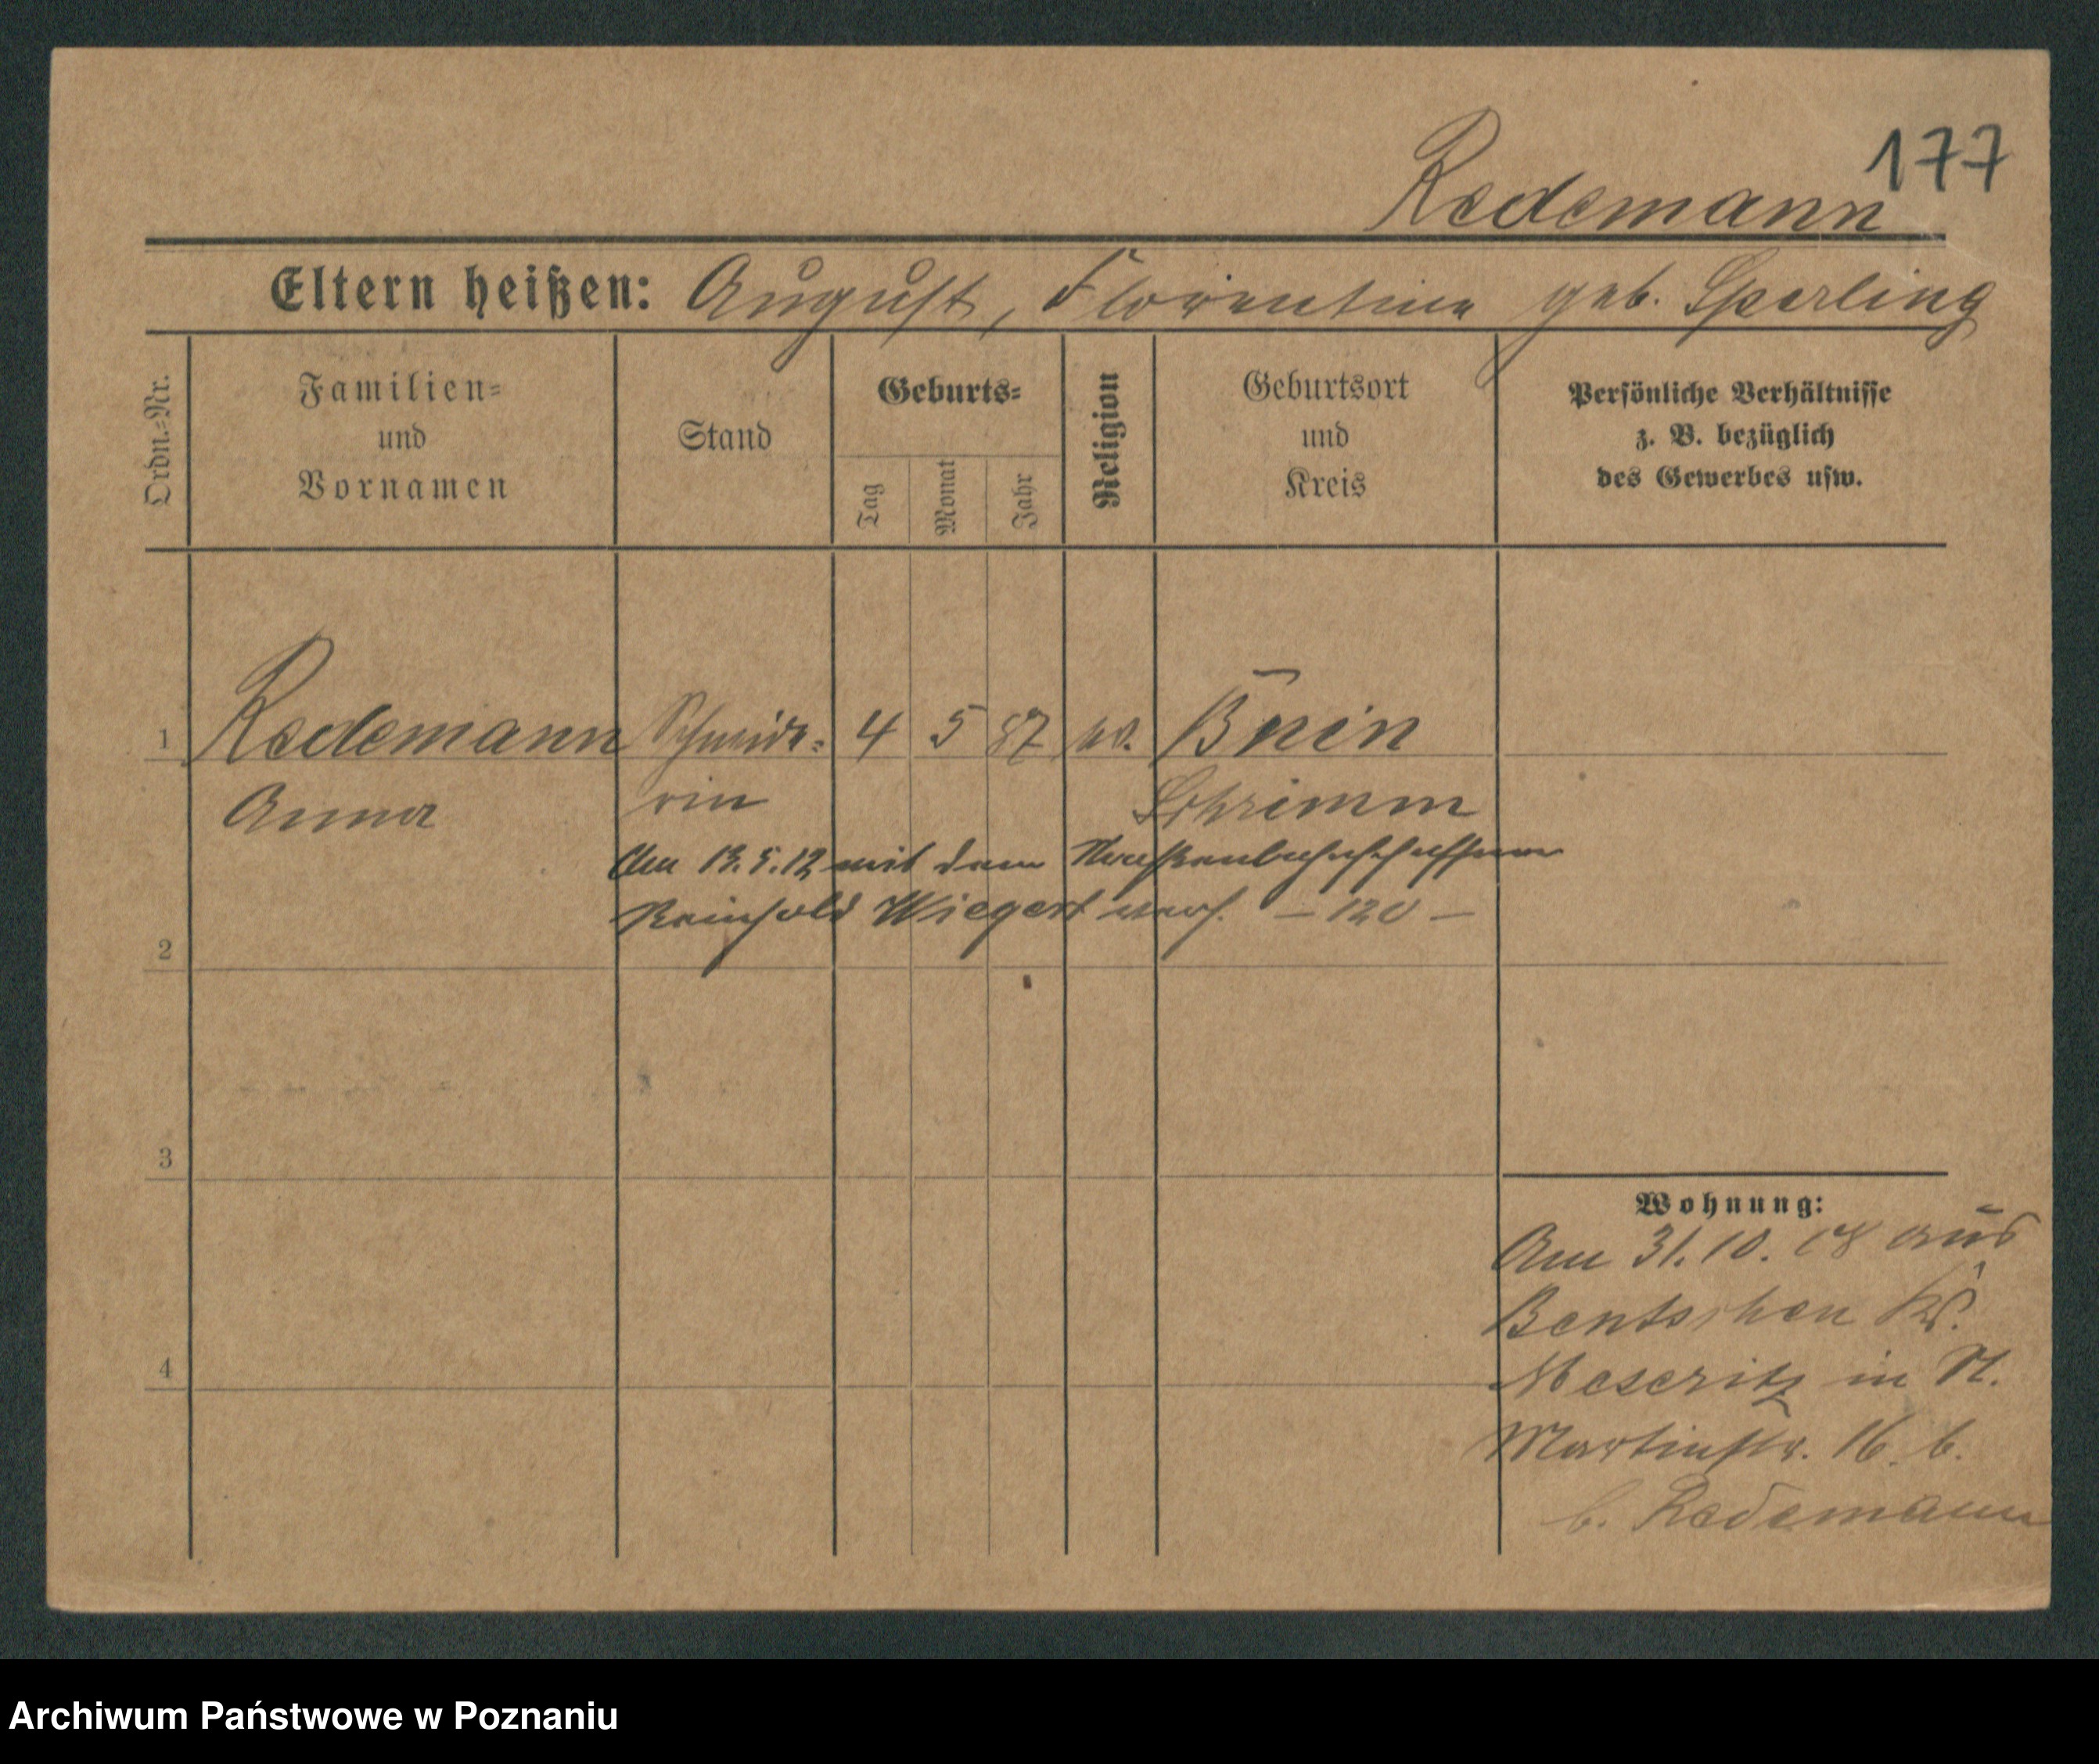 177
Redemann
Eltern heißen: August, Florentine geb. Sperling
Ordn.-Nr.
Familien-
und
Vornamen
Stand
Geburts-
Tag
Monat
Jahr
Religion
Geburtsort
und
Kreis
Persönliche Verhältnisse
z. B. bezüglich
des Gewerbes usw.
1 Redemann Schneide- 4 5 87 ev. Bnin
Anna rin Schrimm
Am 13.5.12 mit dem Straßenbahnschaffner
Reinhold Wiegert verh. – 120 –
2
3
Wohnung:
Am 31. 10. 08 aus
Bentschen Kr.
4
Meseritz in St.
Martinstr. 16. b.
b. Redemann
Archiwum Państwowe w Poznaniu